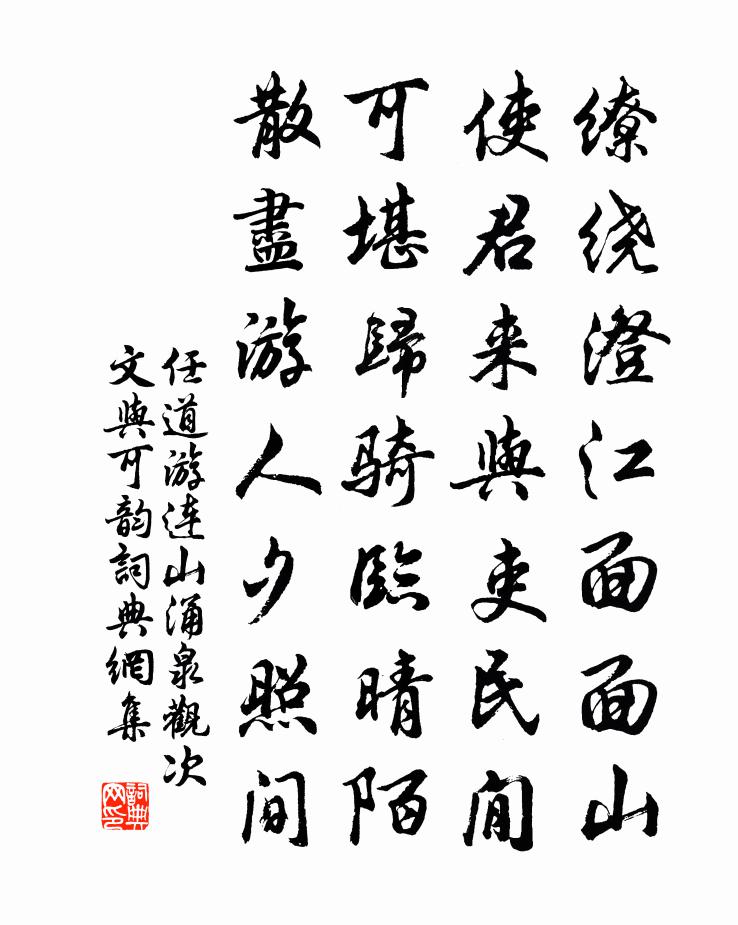 缭绕澄江面面山
使君来與吏民閒
可堪歸骑臨晴陌
散盡游人夕照间
任道游连山涌泉觀次
文與可韵詞典網集
詞典网印